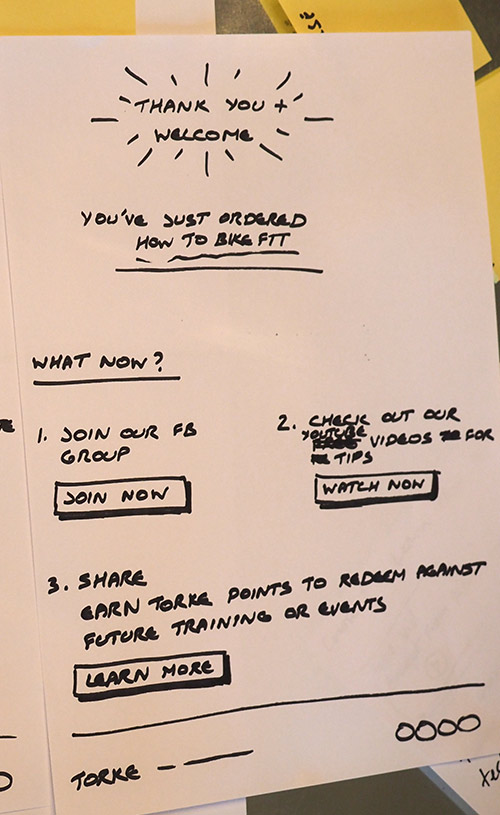 THANK YOU +
WELCOME
YOU'VE JUST ORDERED
HOW TO BIKE FIT
WHAT NOW?
1. JOIN OUR FB
GROUP
JOIN NOW
2. CHECK OUT OUR
YOUTUBE VIDEOS FOR
TIPS
WATCH NOW
3. SHARE
EARN TORKE POINTS TO REDEEM AGAINST
FUTURE TRAINING OR EVENTS
LEARN MORE
TORKE